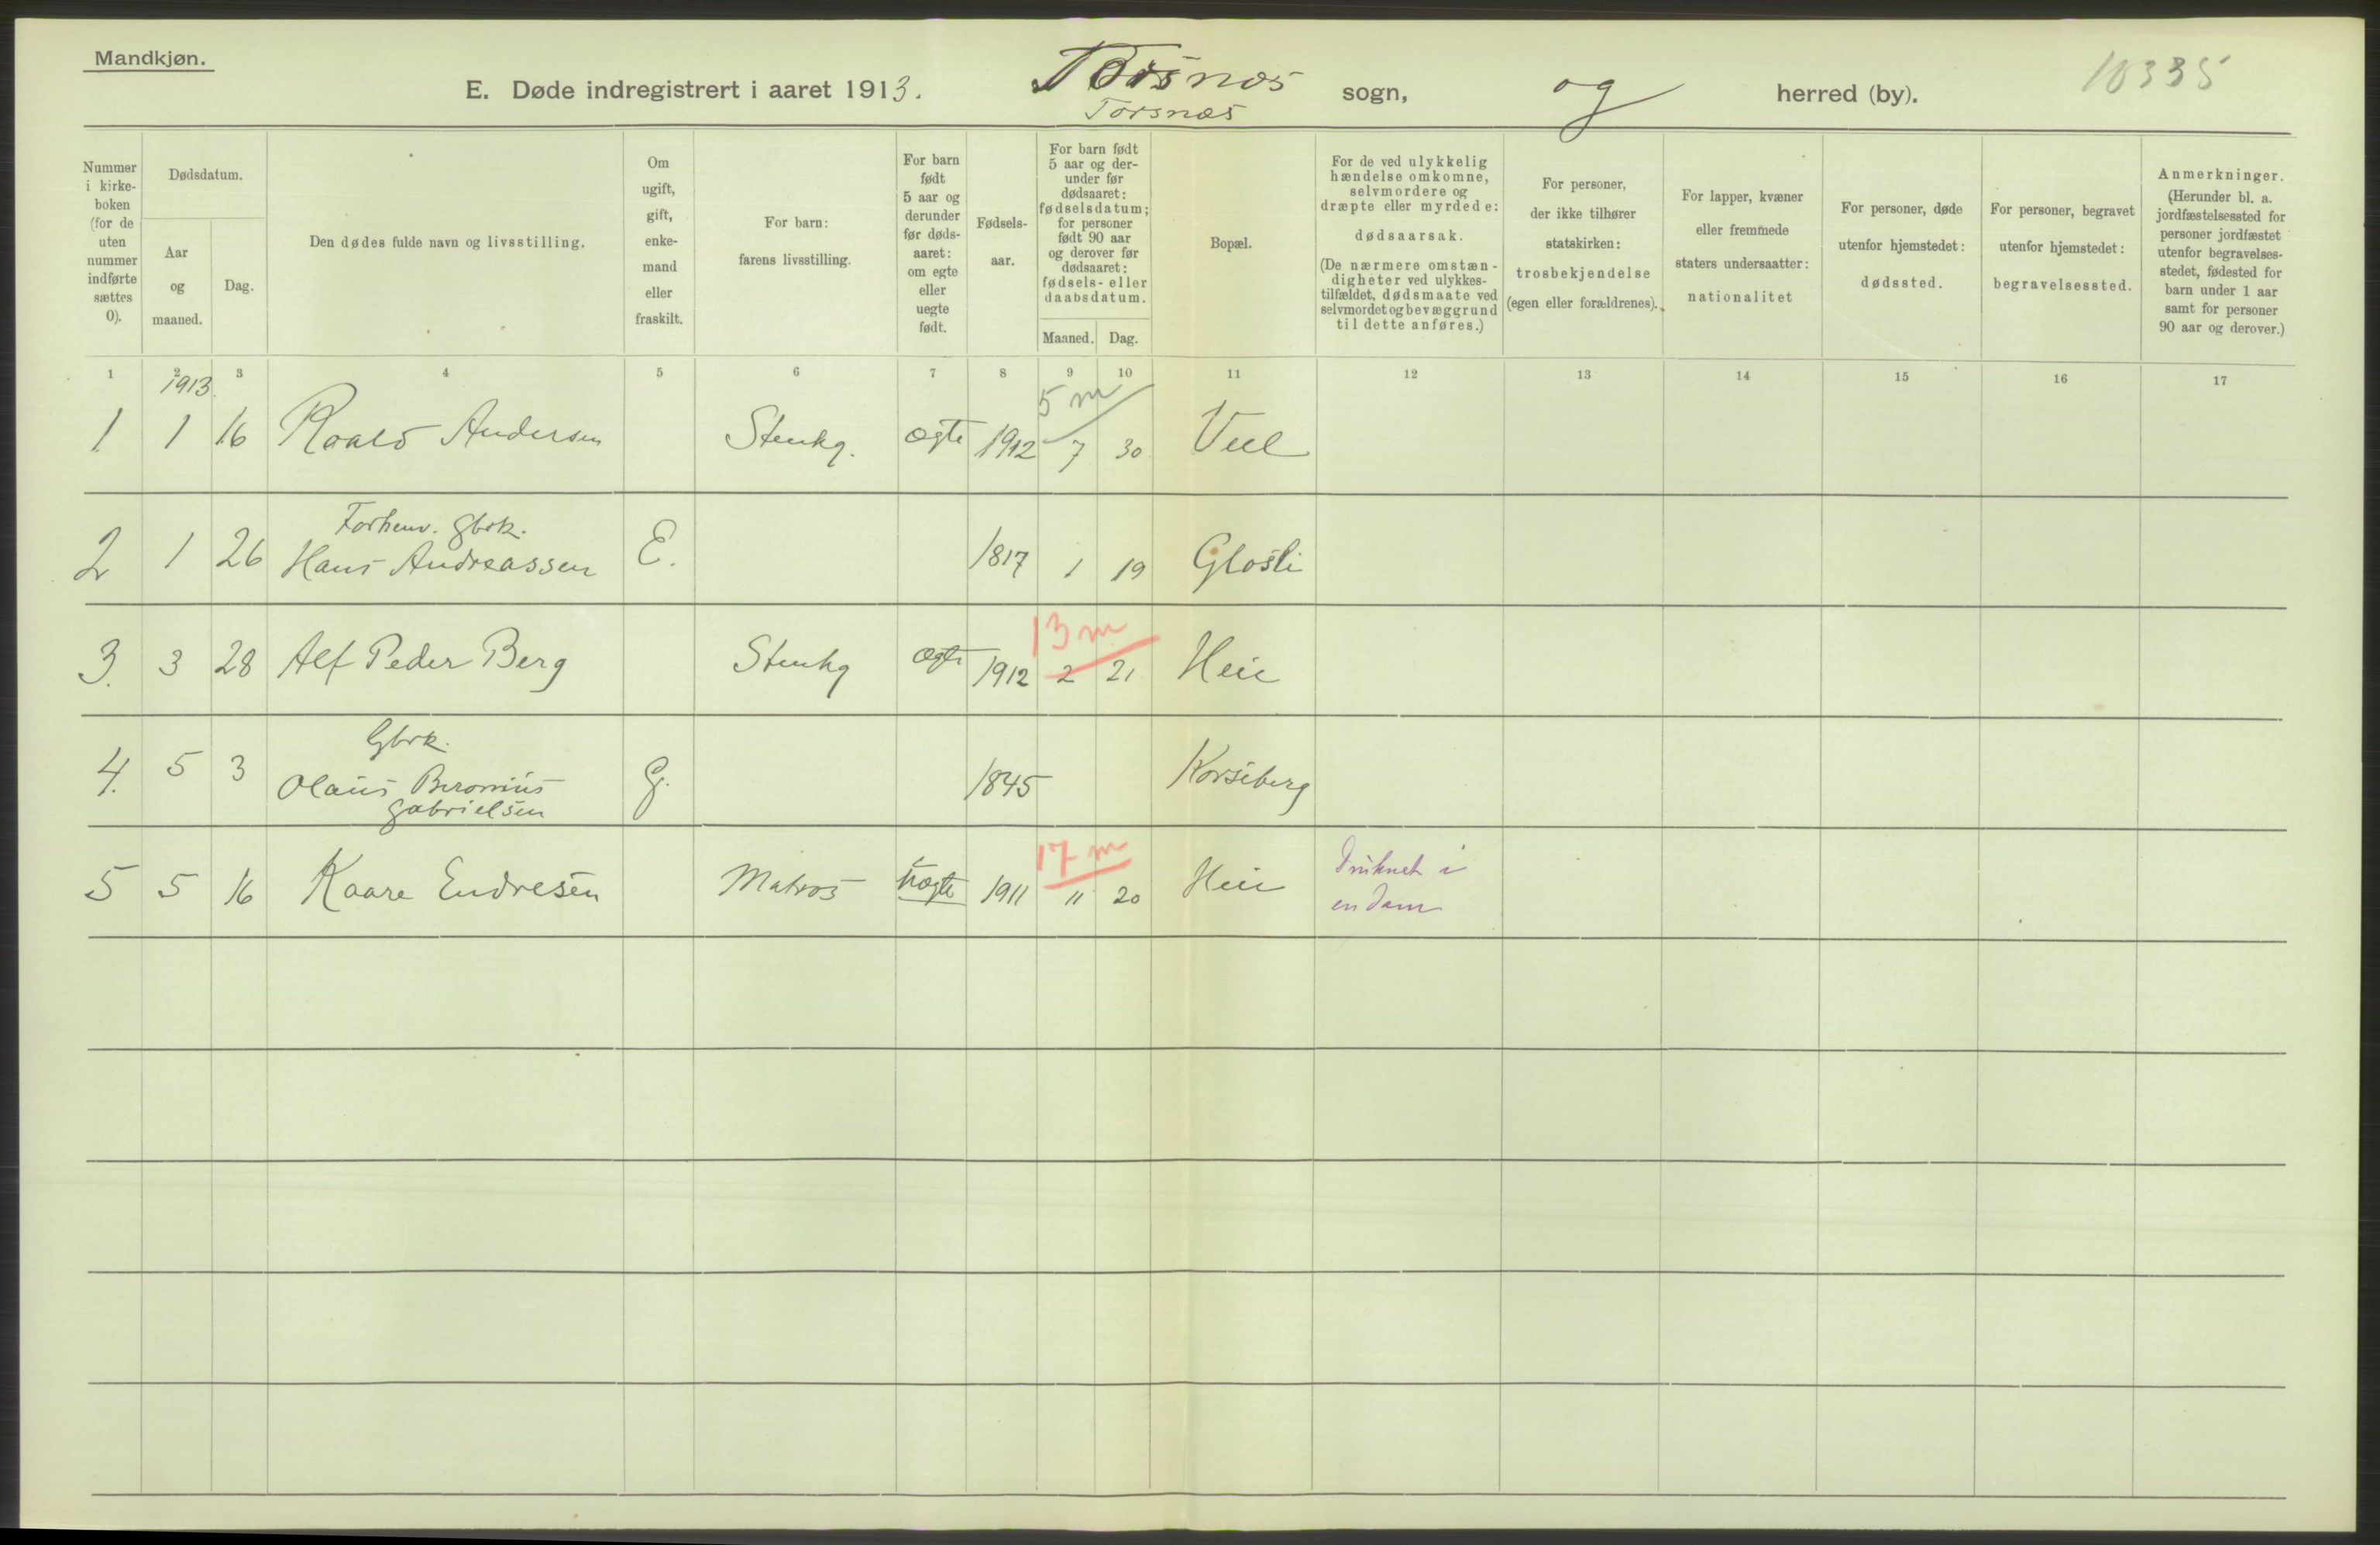 Mandkjøn.
E. Døde indregistrert i aaret 1913. Torsnæs sogn, og herred (by).
Torsnæs
10335
Nummer i kirke-boken (for de uten nummer indførte sættes 0).
Dødsdatum.
Aar og maaned.
Dag.
Den dødes fulde navn og livsstilling.
Om ugift, gift, enke-mand eller fraskilt.
For barn: farens livsstilling.
For barn født 5 aar og derunder før døds-aaret: om egte eller uegte født.
Fødsels-aar.
For barn født 5 aar og der-under før dødsaaret: fødselsdatum; for personer født 90 aar og derover før dødsaaret: fødsels- eller daabsdatum.
Maaned. Dag.
Bopæl.
For de ved ulykkelig hændelse omkomne, selvmordere og dræpte eller myrdede: dødsaarsak. (De nærmere omstæn-digheter ved ulykkes-tilfældet, dødsmaate ved selvmordet og bevæggrund til dette anføres.)
For personer, der ikke tilhører statskirken: trosbekjendelse (egen eller forældrenes).
For lapper, kvæner eller fremmede staters undersaatter: nationalitet
For personer, døde utenfor hjemstedet: dødssted.
For personer, begravet utenfor hjemstedet: begravelsessted.
Anmerkninger. (Herunder bl. a. jordfæstelsessted for personer jordfæstet utenfor begravelses-stedet, fødested for barn under 1 aar samt for personer 90 aar og derover.)
1 2 3 4 5 6 7 8 9 10 11 12 13 14 15 16 17
1913.
5 m
1 1 16 Roald Andersen Stenhg. ægte 1912 7 30
Forhenv. Gbrk.
2 1 26 Hans Andreassen E. 1817 1 19 Glosli
13 m
3. 3 28 Alf Peder Berg Stenhg ægte 1912 2 21 Heie
Gbrk.
4. 5 3 Olaus Beronius G. 1845 Korseberg
Gabrielsen
17 m
5 5 16 Kaare Endresen Matros uægte 1911 11 20 Heie Druknet i
en dam